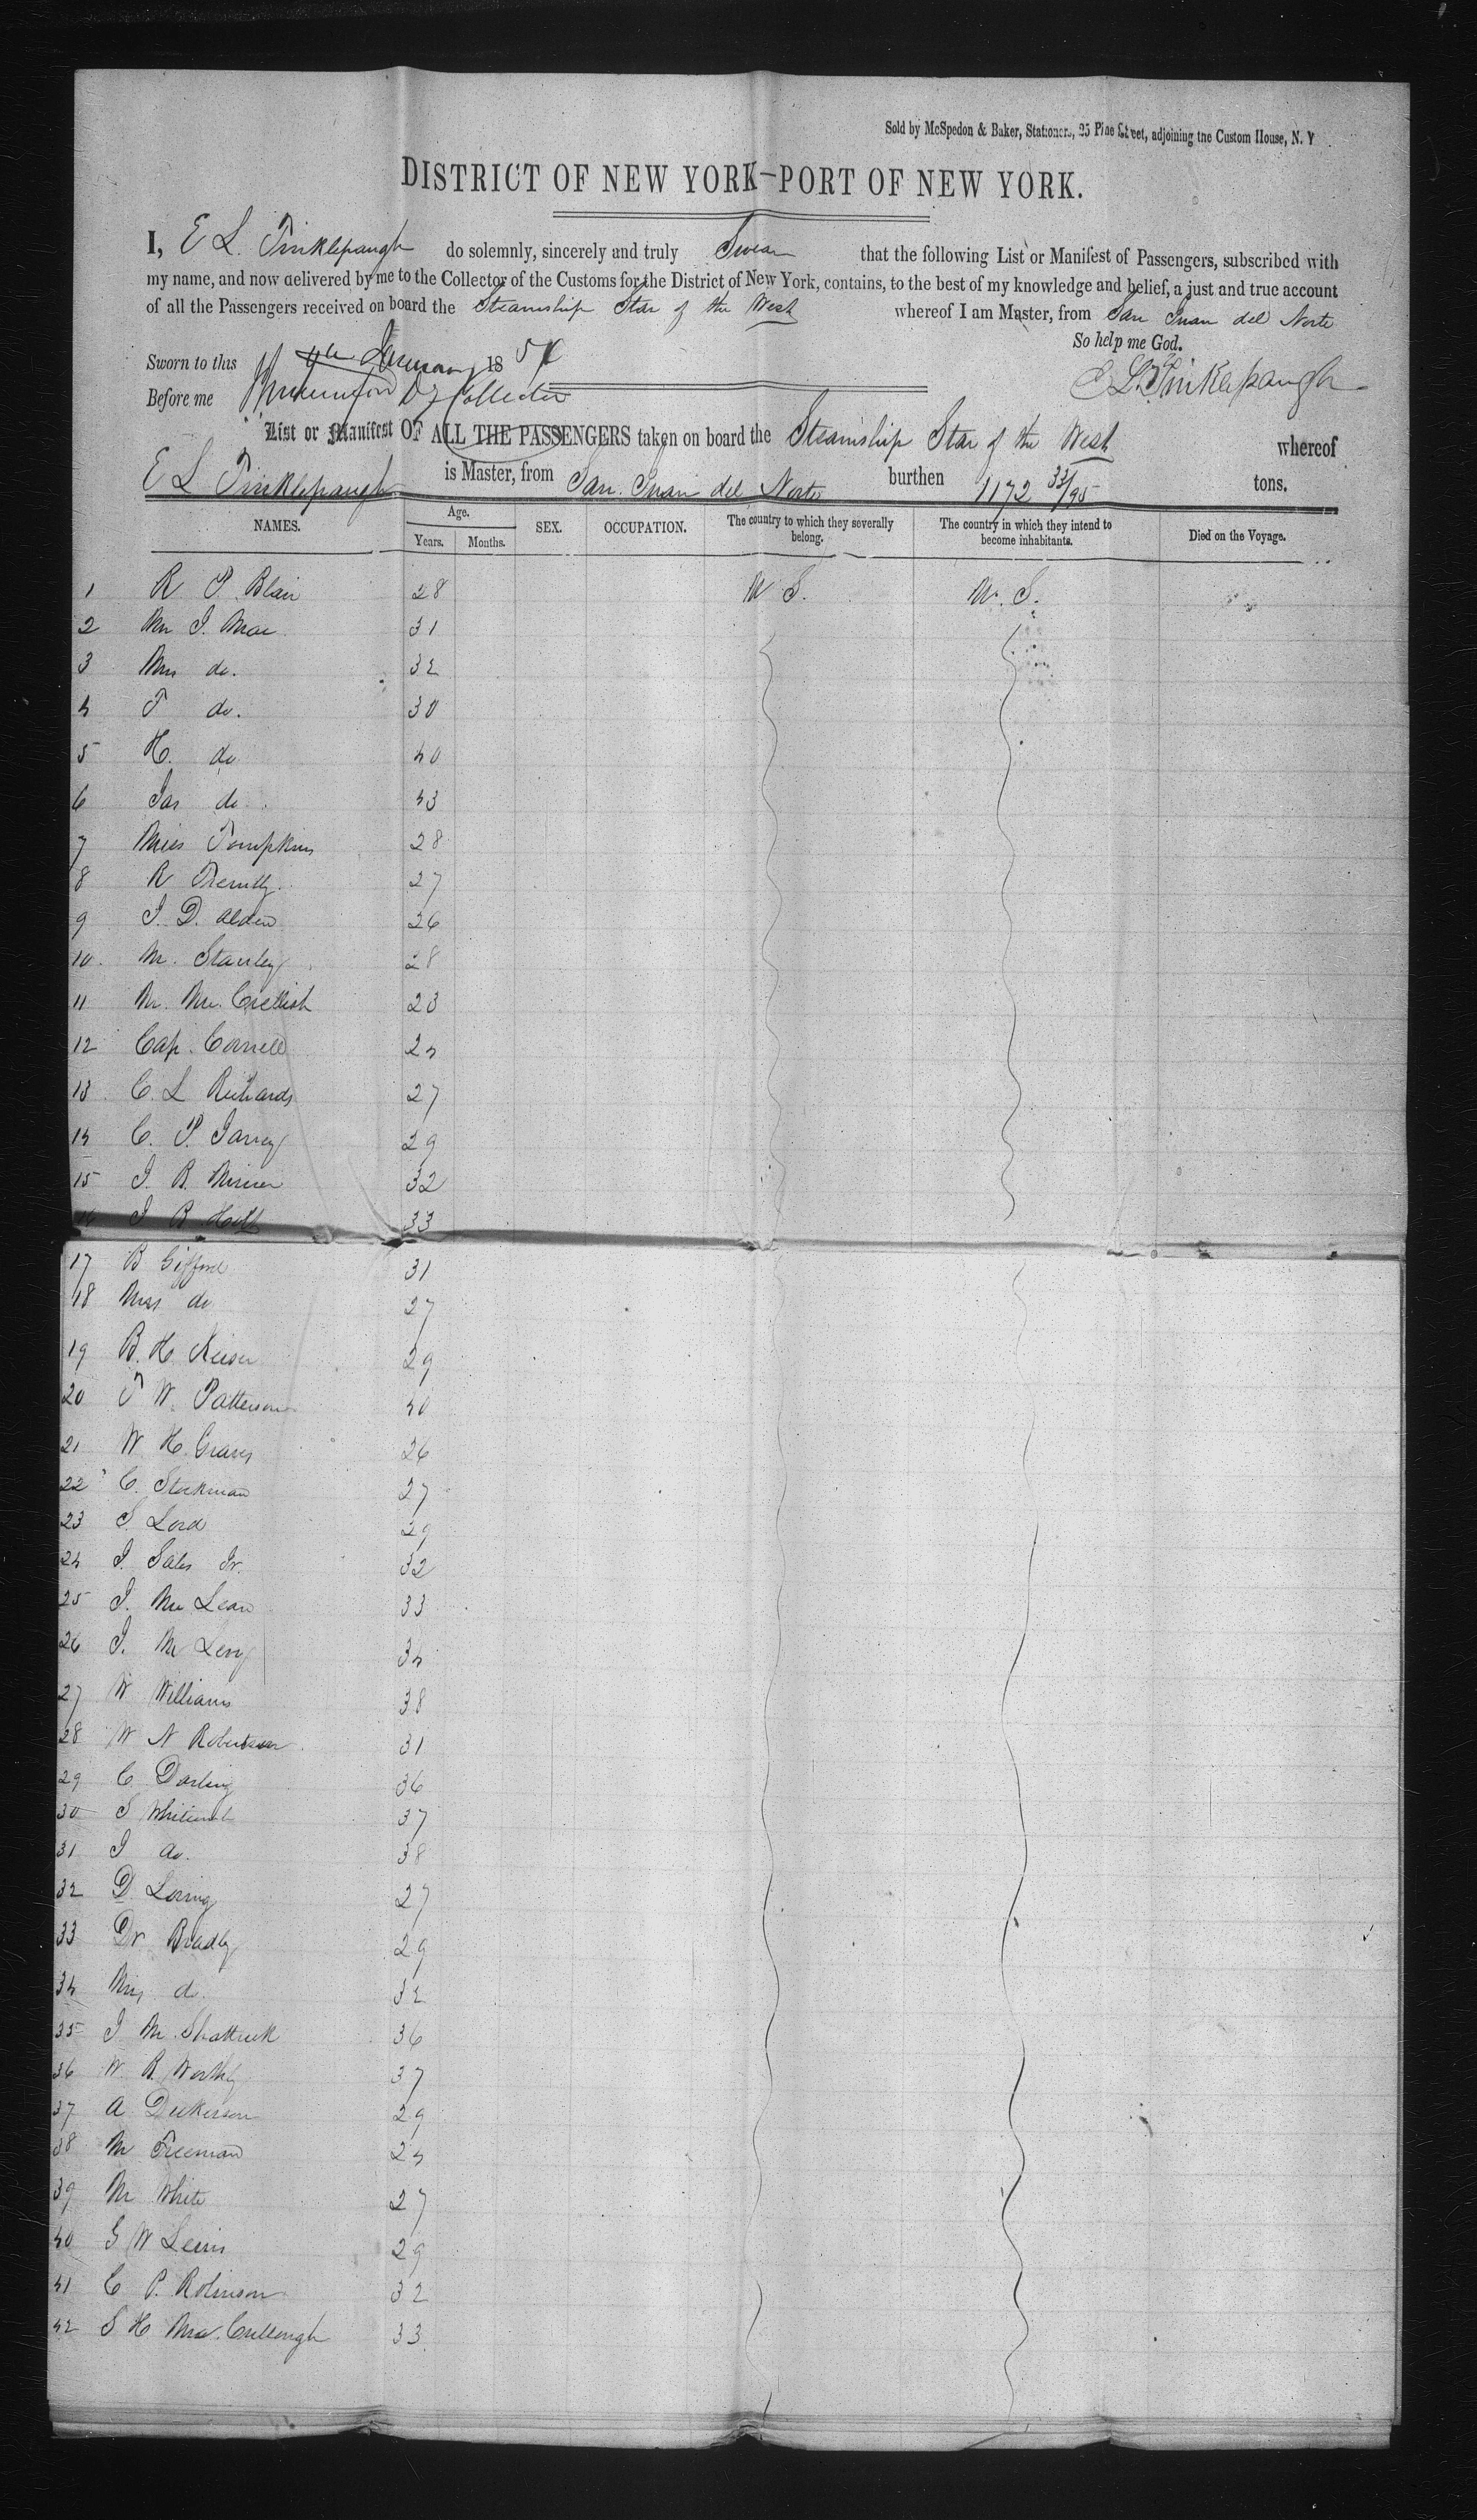 Sold by McSpedon & Baker, Stationers, 25 Pine Street, adjoining the Custom House, N. Y
DISTRICT OF NEW YORK—PORT OF NEW YORK.
I, E L. Tinklepaugh do solemnly, sincerely and truly Swear that the following List or Manifest of Passengers, subscribed with
my name, and now delivered by me to the Collector of the Customs for the District of New York, contains, to the best of my knowledge and belief, a just and true account
of all the Passengers received on board the Steamship Star of the West whereof I am Master, from San Juan del Norte
So help me God.
Sworn to this January 185
E L Tinklepaugh
Before me Dy Collector
List or Manifest OF ALL THE PASSENGERS taken on board the Steamship Star of the West whereof
E L Tinklepaugh is Master, from San Juan del Norte burthen 1172 33/95 tons.
NAMES. Age. Years. Months. SEX. OCCUPATION. The country to which they severally belong. The country in which they intend to become inhabitants. Died on the Voyage.
1 R P. Blair 28 U S. U. S.
2 Mr J. Mac 31
3 Mrs do. 32
4 T do. 30
5 H. do 40
6 Jas do. 43
7 Miss Tompkins 28
8 R 27
9 J. D. Alden 26
10. M. Stanley 28
11 28
12 Cap. Cornell 24
13 C. L Richards 27
14 C. P. 29
15 J. B. 32
16 J B 33
17 B Gifford 31
18 Miss do 27
19 B. H. 29
20 T W. Patterson 40
21 W H. Graves 26
22 C. Stockman 27
23 S. Lord 29
24 J. Sales Jr. 32
25 J. Mc Lean 33
26 J. M Levy 34
27 W Williams 38
28 W N Robertson 31
29 C. Darling 36
30 S Whitcomb 37
31 J do. 38
32 D. Loring 27
33 Dr Bradly 29
34 Mrs do. 32
35 J M. Shattuck 36
36 W. B. Worthy 37
37 A Dickerson 29
38 M Freeman 24
39 M White 27
40 G W Lewis 29
41 C P. Robinson 32
42 S H Mc. Cullough 33